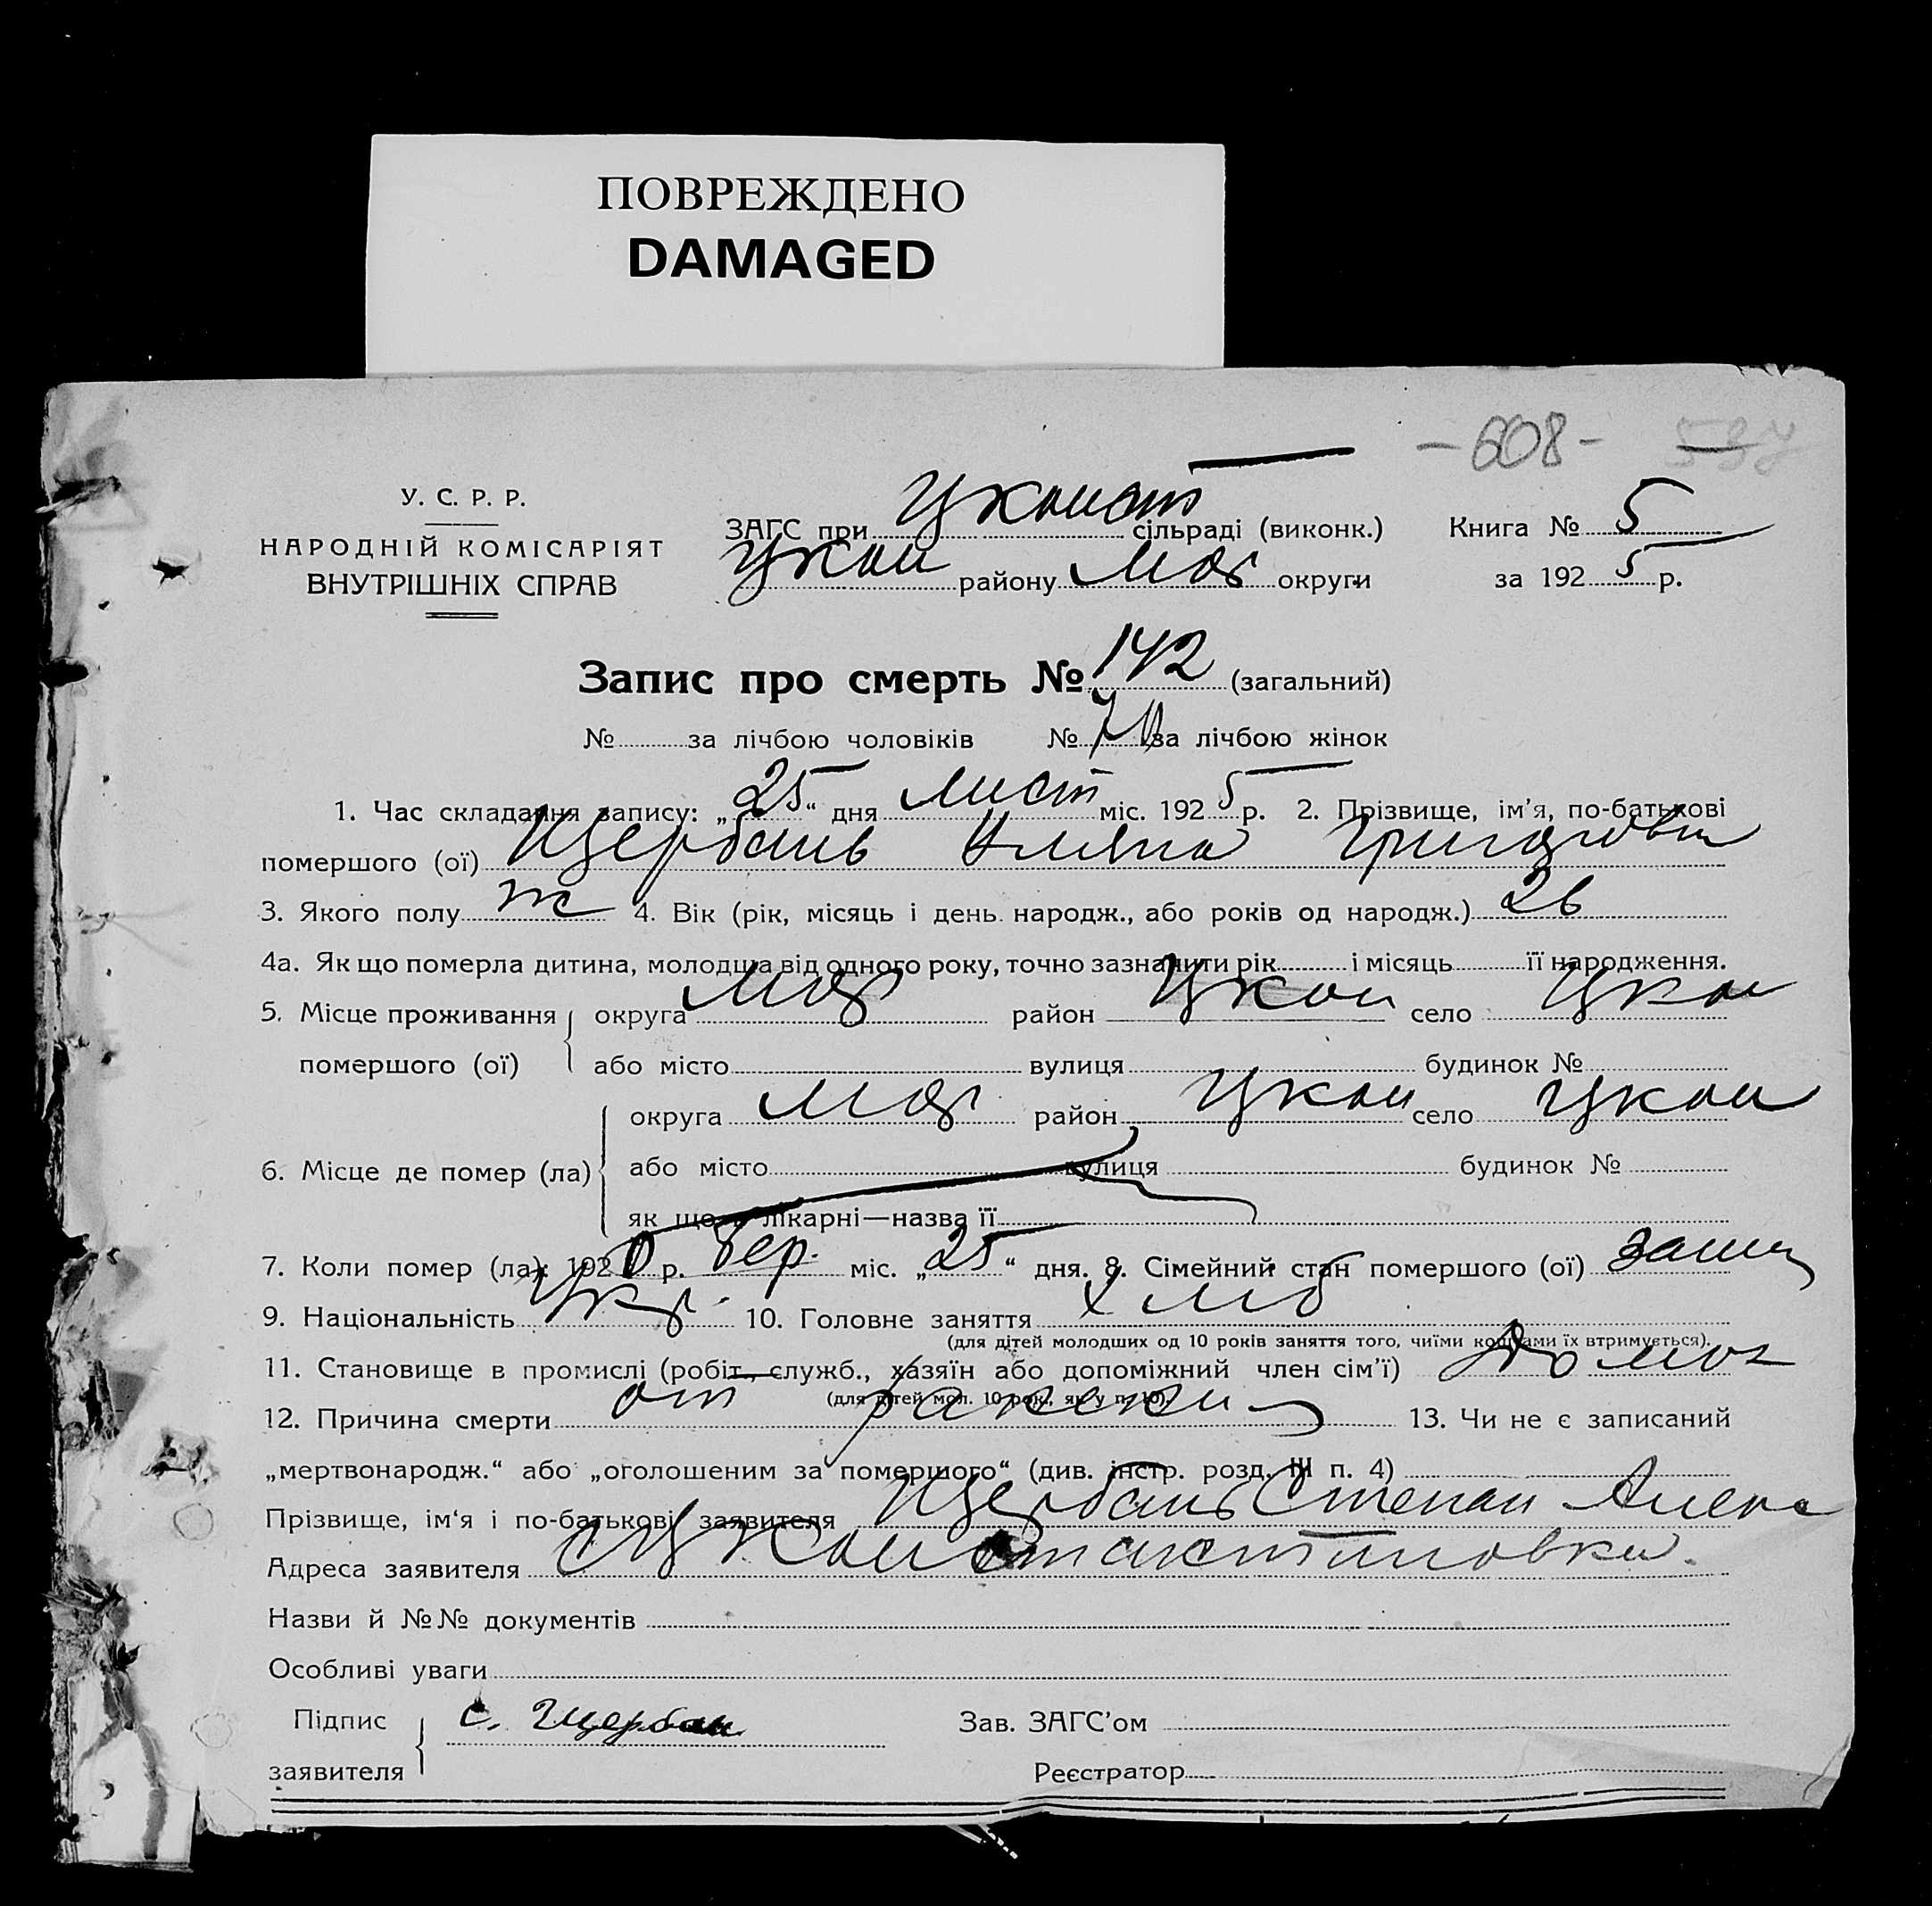 ПОВРЕЖДЕНО
DAMAGED
-608- 537
У. С. Р. Р.
НАРОДНІЙ КОМІСАРІЯТ
ВНУТРІШНІХ СПРАВ
ЗАГС при Цконст сільраді (виконк.) Книга № 5
Цкон району округи за 1925 р.
Запис про смерть № 142 (загальний)
№ за лічбою чоловіків № за лічбою жінок
1. Час складання запису: „25“ дня лист міс. 1925 р. 2. Прізвище, ім'я, по-батькові
помершого (ої) Щербань Уляна Григоровна
3. Якого полу ж 4. Вік (рік, місяць і день народж., або років од народж.) 26
4а. Як що померла дитина, молодша від одного року, точно зазначити рік і місяць її народження.
5. Місце проживання округа район Цкон село Цкон
помершого (ої) або місто вулиця будинок №
округа район Цкон село Цкон
6. Місце де помер (ла) або місто вулиця будинок №
як що в лікарні—назва її
7. Коли помер (ла): 192 р. міс. „25“ дня. 8. Сімейний стан помершого (ої) замуж
9. Національність Укр. 10. Головне заняття хліб
(для дітей молодших од 10 років заняття того, чиїми коштами їх втримується).
11. Становище в промислі (робіт., служб., хазяїн або допоміжний член сім'ї)
(для дітей мол. 10 рок., як у п. 10).
12. Причина смерти от 13. Чи не є записаний
„мертвонародж.“ або „оголошеним за помершого“ (див. інстр. розд. III п. 4)
Прізвище, ім'я і по-батькові заявителя Щербань Степан Алекс
Адреса заявителя
Назви й №№ документів
Особливі уваги
Підпис С. Щербань Зав. ЗАГС'ом
заявителя Реєстратор